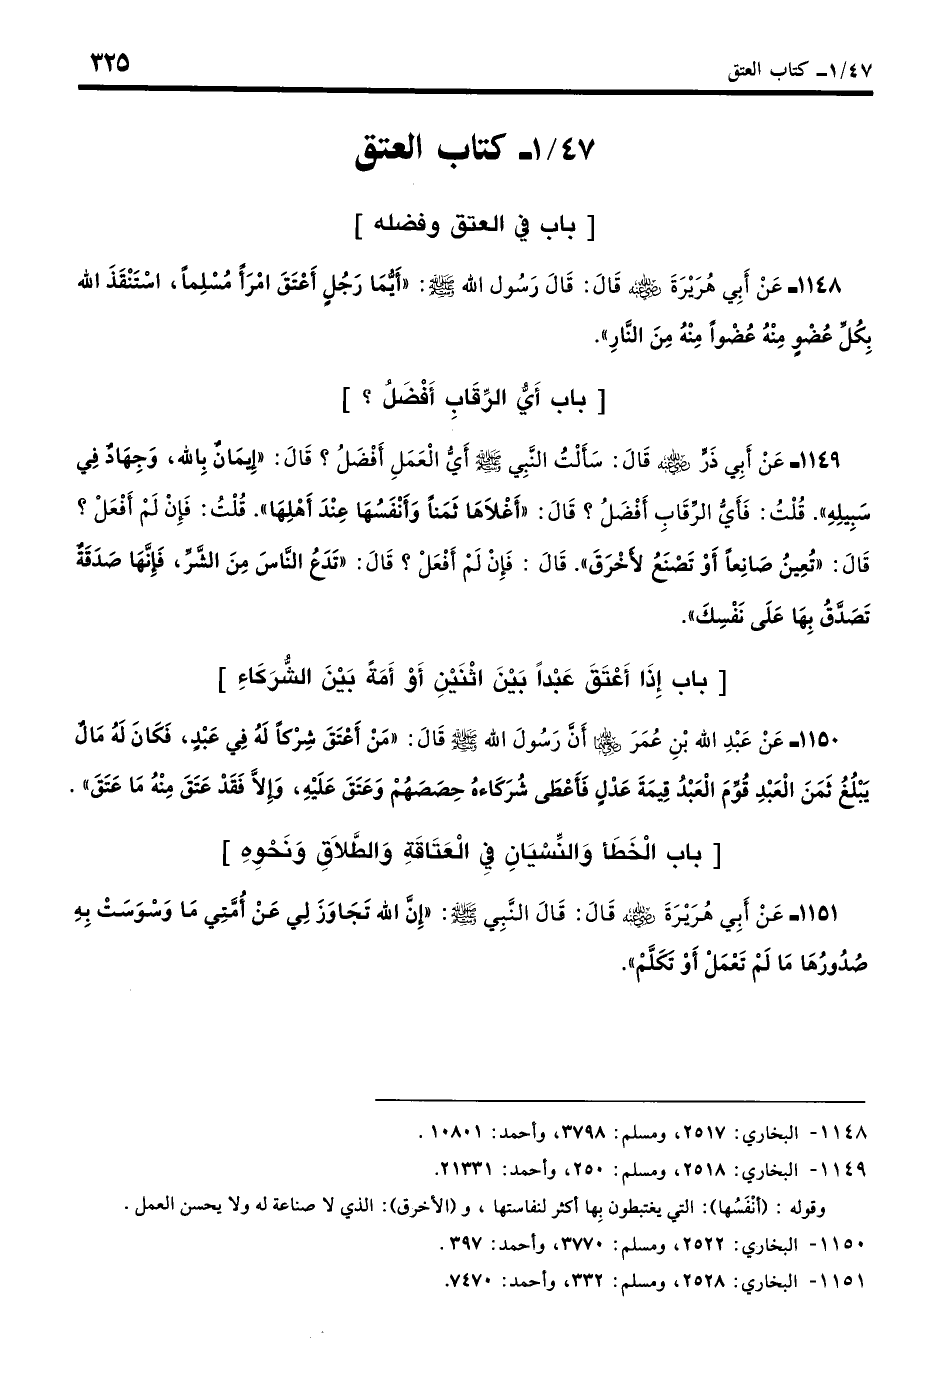 ١/٤٧ـ كتاب العتق ٣٢٥
١/٤٧ـ كتاب العتق
[ باب في العتق وفضله ]
١١٤٨ـ عَنْ أَبِي هُرَيْرَةَ رضي الله عنه قَالَ: قَالَ رَسُول الله ﷺ: «أَيُّمَا رَجُلٍ أَعْتَقَ امْرَأً مُسْلِماً، اسْتَنْقَذَ الله
بِكُلِّ عُضْوٍ مِنْهُ عُضْواً مِنْهُ مِنَ النَّارِ».
[ باب أَيُّ الرِّقَابِ أَفْضَلُ ؟ ]
١١٤٩ـ عَنْ أَبِي ذَرٍّ رضي الله عنه قَالَ: سَأَلْتُ النَّبِي ﷺ أَيُّ الْعَمَلِ أَفْضَلُ ؟ قَالَ: «إِيمَانٌ بِالله، وَجِهَادٌ فِي
سَبِيلِهِ». قُلْتُ: فَأَيُّ الرِّقَابِ أَفْضَلُ ؟ قَالَ: «أَغْلَاهَا ثَمَناً وَأَنْفَسُهَا عِنْدَ أَهْلِهَا». قُلْتُ: فَإِنْ لَمْ أَفْعَلْ ؟
قَالَ: «تُعِينُ صَانِعاً أَوْ تَصْنَعُ لأَخْرَقَ». قَالَ : فَإِنْ لَمْ أَفْعَلْ ؟ قَالَ: «تَدَعُ النَّاسَ مِنَ الشَّرِّ، فَإِنَّهَا صَدَقَةٌ
تَصَدَّقُ بِهَا عَلَى نَفْسِكَ».
[ باب إِذَا أَعْتَقَ عَبْداً بَيْنَ اثْنَيْنِ أَوْ أَمَةً بَيْنَ الشُّرَكَاءِ ]
١١٥٠ـ عَنْ عَبْدِ الله بْنِ عُمَرَ رضي الله عنهما أَنَّ رَسُولَ الله ﷺ قَالَ: «مَنْ أَعْتَقَ شِرْكاً لَهُ فِي عَبْدٍ، فَكَانَ لَهُ مَالٌ
يَبْلُغُ ثَمَنَ الْعَبْدِ قُوِّمَ الْعَبْدُ قِيمَةَ عَدْلٍ فَأَعْطَى شُرَكَاءهُ حِصَصَهُمْ وَعَتَقَ عَلَيْهِ، وَإِلاَّ فَقَدْ عَتَقَ مِنْهُ مَا عَتَقَ» .
[ باب الْخَطَأ وَالنِّسْيَانِ فِي الْعَتَاقَةِ وَالطَّلَاقِ وَنَحْوِهِ ]
١١٥١ـ عَنْ أَبِي هُرَيْرَةَ رضي الله عنه قَالَ: قَالَ النَّبِي ﷺ: «إِنَّ الله تَجَاوَزَ لِي عَنْ أُمَّتِي مَا وَسْوَسَتْ بِهِ
صُدُورُهَا مَا لَمْ تَعْمَلْ أَوْ تَكَلَّمْ».
١١٤٨- البخاري: ٢٥١٧، ومسلم: ٣٧٩٨، وأحمد: ١٠٨٠١ .
١١٤٩- البخاري: ٢٥١٨، ومسلم: ٢٥٠، وأحمد: ٢١٣٣١.
وقوله : (أَنْفَسُها): التي يغتبطون بِها أكثر لنفاستها ، و (الأخرق): الذي لا صناعة له ولا يحسن العمل .
١١٥٠- البخاري: ٢٥٢٢، ومسلم: ٣٧٧٠، وأحمد: ٣٩٧ .
١١٥١- البخاري: ٢٥٢٨، ومسلم: ٣٣٢، وأحمد: ٧٤٧٠.